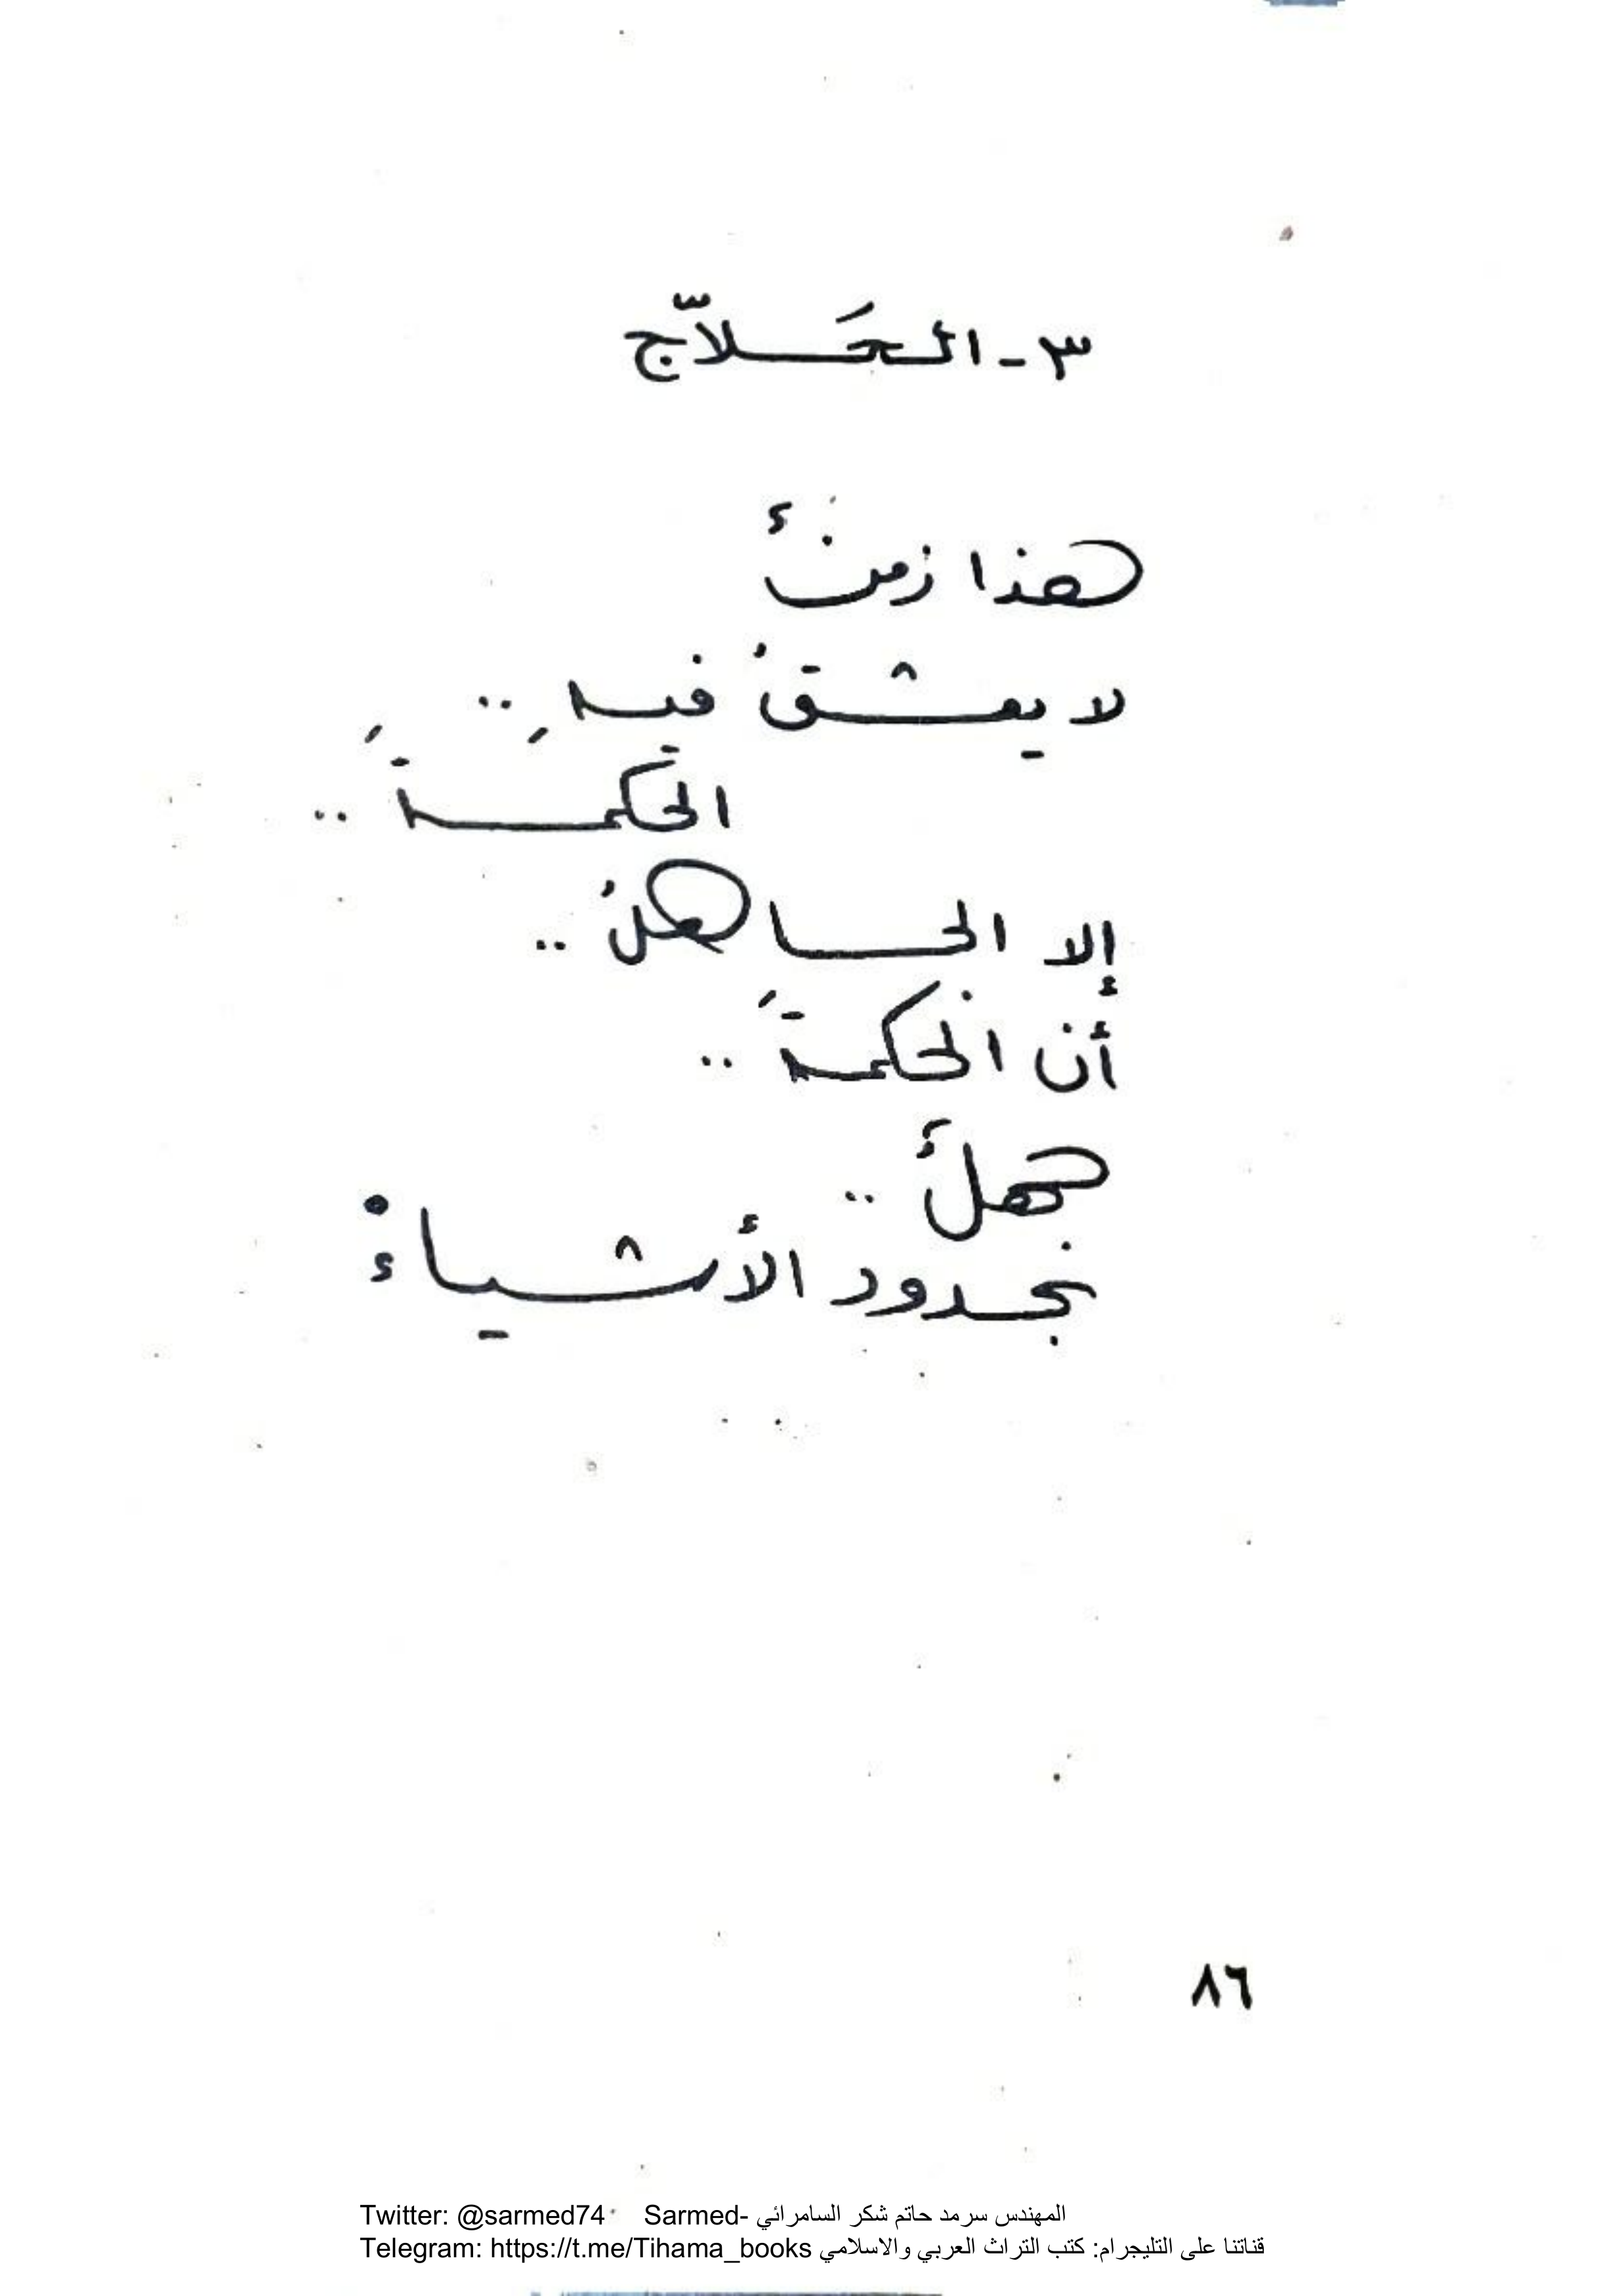 ٣ - الحَلاّج
هذا زمنٌ
لا يعشقُ فيهِ ..
الحكمةَ ..
إلا الجاهلُ ..
أن الحكمةَ ..
جهلٌ ..
بحدود الأشياءْ
٨٦
Twitter: @sarmed74 Sarmed- المهندس سرمد حاتم شكر السامرائي
Telegram: https://t.me/Tihama_books قناتنا على التليجرام: كتب التراث العربي والاسلامي